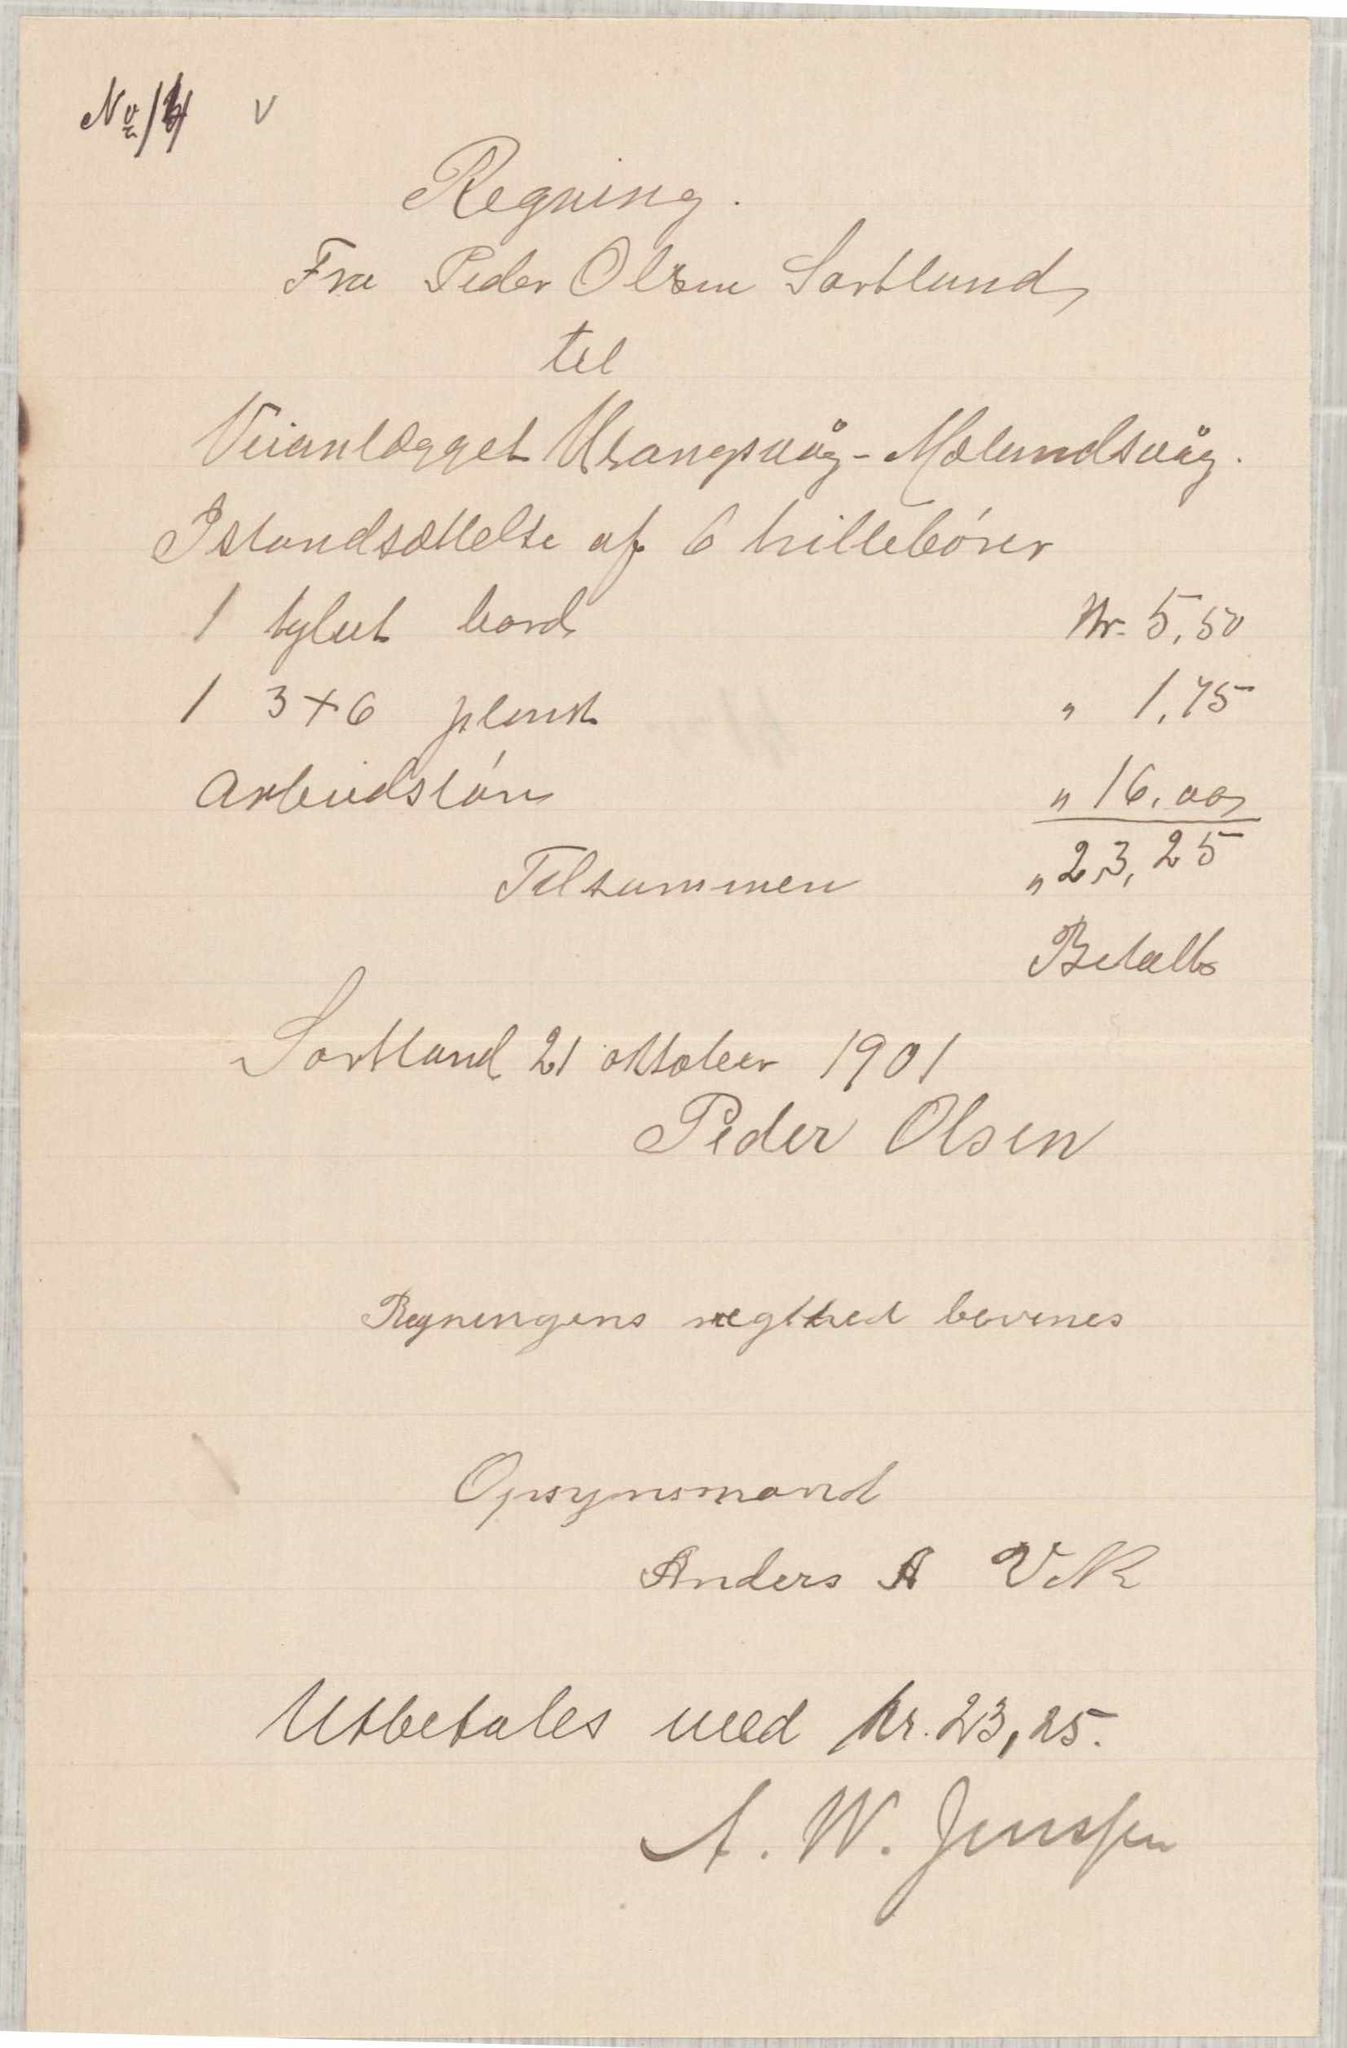 No 14 v
Regning.
Fra Peder Olsen Sortland
til
Veianlægget Urangsvåg - Mælandsvåg.
Istandsættelse af 6 trillebórer
1 tylvt bord Kr. 5,50
1 3 + 6 plank " 1,75
Arbeidslón " 16,00
Tilsammen " 23,25
Betalt
Sortland 21 oktober 1901
Peder Olsen
Regningens rigthed bevines
Opsynsmand
Anders A Vik
Utbetales med kr. 23,25.
A. W. Jenssen